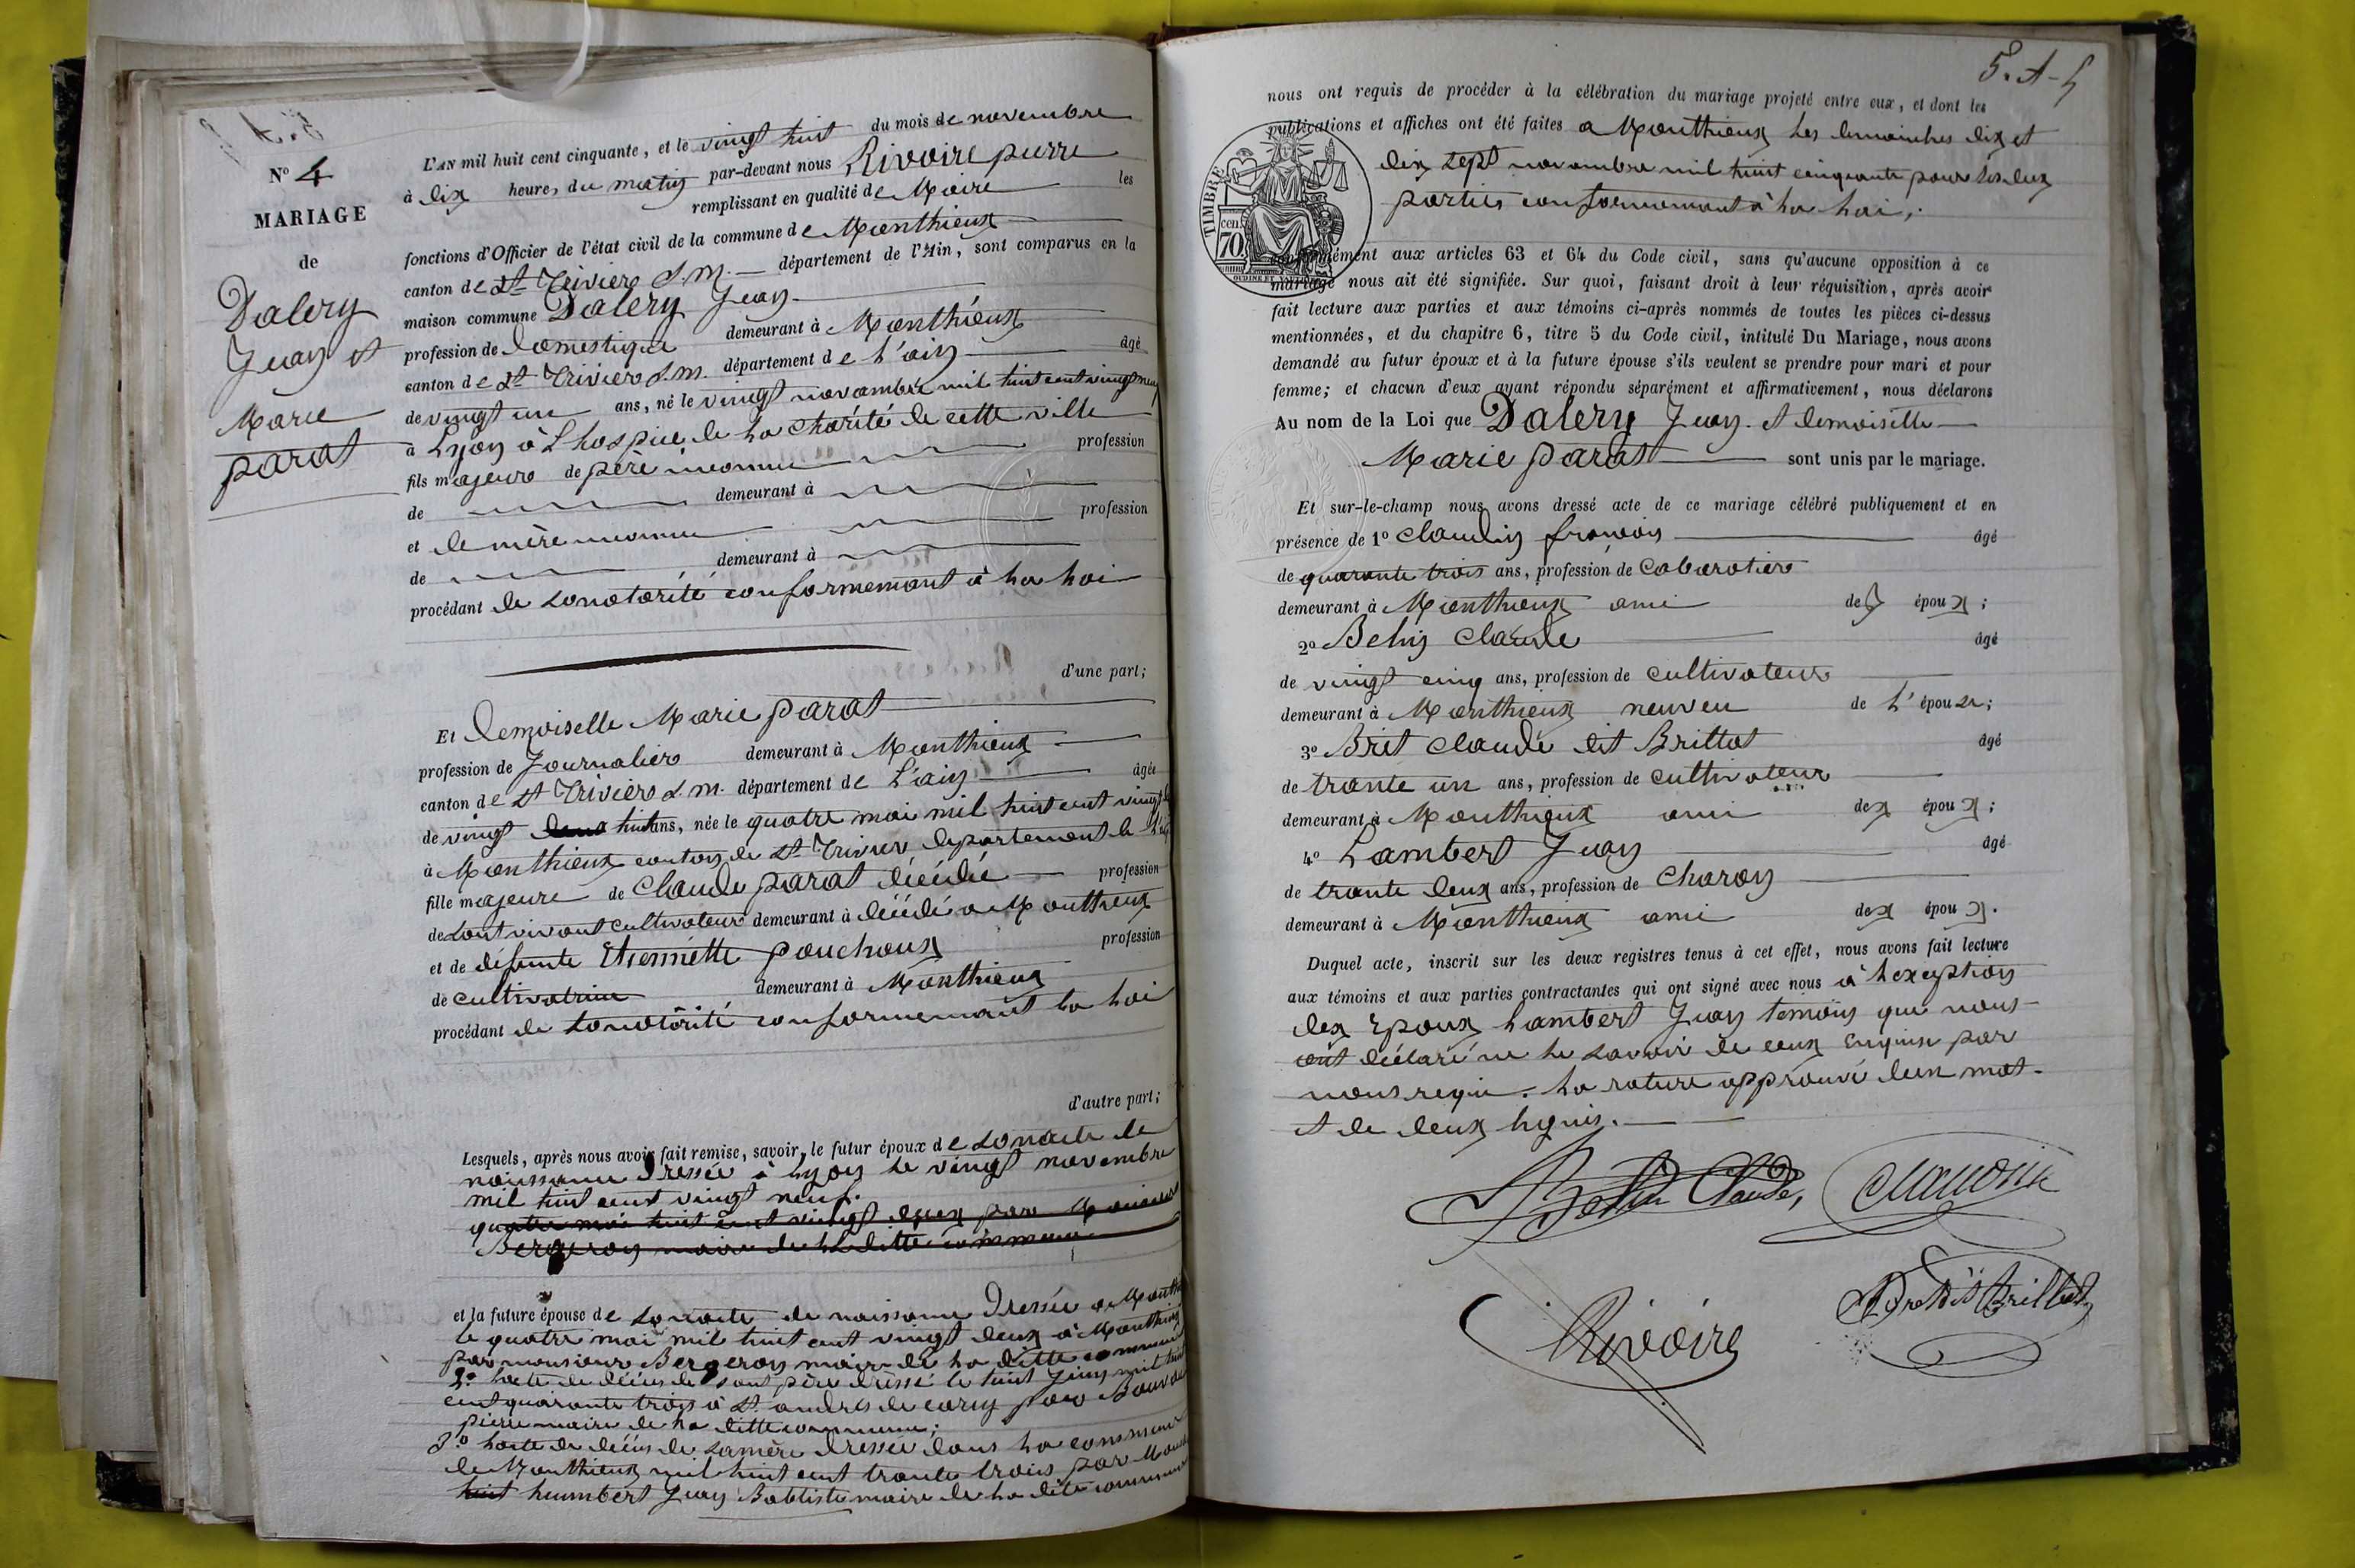 N° 4
MARIAGE
de
Dalery
Jean et
Marie
parat
L'AN mil huit cent cinquante, et le vingt huit du mois de novembre
à dix heure, du matin par-devant nous Rivoire pierre
remplissant en qualité de Maire les
fonctions d'Officier de l'état civil de la commune de Monthieux
canton de St Trivier S. M. département de l'Ain, sont comparus en la
maison commune Dalery Jean
profession de domestique demeurant à Monthieux
canton de St Trivier S. m. département de L'ain âgé
de vingt un ans, né le vingt novembre mil huit cent vingt neuf
a Lyon à Lhospice de La charité de cette ville
fils majeure de père inconnu profession
de demeurant à
et de mère inconnu profession
de demeurant à
procédant de Sonotorité conformemant à La Loi
d'une part;
Et demoiselle Marie parat
profession de Journalier demeurant à Monthieux
canton de St Trivier S. m. département de L'ain âgée
de vingt huit ans, née le quatre mai mil huit cent vingt
à Monthieux canton de St Trivier departement de
fille majeure de Claude parat décédé profession
de Sont vivant cultivateur demeurant à décédé a Monthieux
et de défunte Etiennette pouchoux profession
de cultivatrice demeurant à Monthieux
procédant de Sonotorité conformemant La Loi
d'autre part;
Lesquels, après nous avoir fait remise, savoir, le futur époux de Sonacte de
naissance Dressée à Lyon Le vingt novembre
mil huit cent vingt neuf.
quatre mai huit cent vingt deux par Monsieur
Bergeron maire de La ditte commune
et la future épouse de Sonacte de naissance Dressée a
le quatre mai mil huit cent vingt deux à Monthieux
par monsieur Bergeron maire de La ditte commune
2° Lacte de décès de Sont père dressé le huit Juin mil huit
cent quarante trois à St andré de corcy par
pierre maire de La ditte commune;
3° Lacte de décès de Samère Dressée dans La commune
de Monthieux mil huit cent trante trois par
humbert Jean Babtiste maire de La dite commune
5. A-5
nous ont requis de procéder à la célébration du mariage projeté entre eux, et dont les
publications et affiches ont été faites a Monthieux Les dimanches dix et
dix Sept novembre mil huit cinquante pour Les deux
parties conformemant à La Loi,
TIMBRE
cen.
70
OUDINÉ ET
conformément aux articles 63 et 64 du Code civil, sans qu'aucune opposition à ce
mariage nous ait été signifiée. Sur quoi, faisant droit à leur réquisition, après avoir
fait lecture aux parties et aux témoins ci-après nommés de toutes les pièces ci-dessus
mentionnées, et du chapitre 6, titre 5 du Code civil, intitulé Du Mariage, nous avons
demandé au futur époux et à la future épouse s'ils veulent se prendre pour mari et pour
femme; et chacun d'eux ayant répondu séparément et affirmativement, nous déclarons
Au nom de la Loi que Dalery Jean et demoiselle
Marie parat sont unis par le mariage.
Et sur-le-champ nous avons dressé acte de ce mariage célébré publiquement et en
présence de 1° Claudin françois âgé
de quarante trois ans, profession de Cabaratier
demeurant à Monthieux ami des époux;
2° Belin Claude âgé
de vingt cinq ans, profession de cultivateur
demeurant à Monthieux neuveu de L'épouse;
3° Bret Claude dit Brillat âgé
de trante un ans, profession de cultivateur
demeurant à Monthieux ami dex époux;
4° Lambert Jean âgé
de trante deux ans, profession de charon
demeurant à Monthieux ami dex époux.
Duquel acte, inscrit sur les deux registres tenus à cet effet, nous avons fait lecture
aux témoins et aux parties contractantes qui ont signé avec nous à Lexception
dex Epoux Lambert Jean temoin que nous
ont déclaré ne Le Savoir de ceux Enquise par
nous requi. La rature approuvé deun mot
et de deux Lignis.
Belin Claude, Claudin
Rivoire Bret dit Brillat